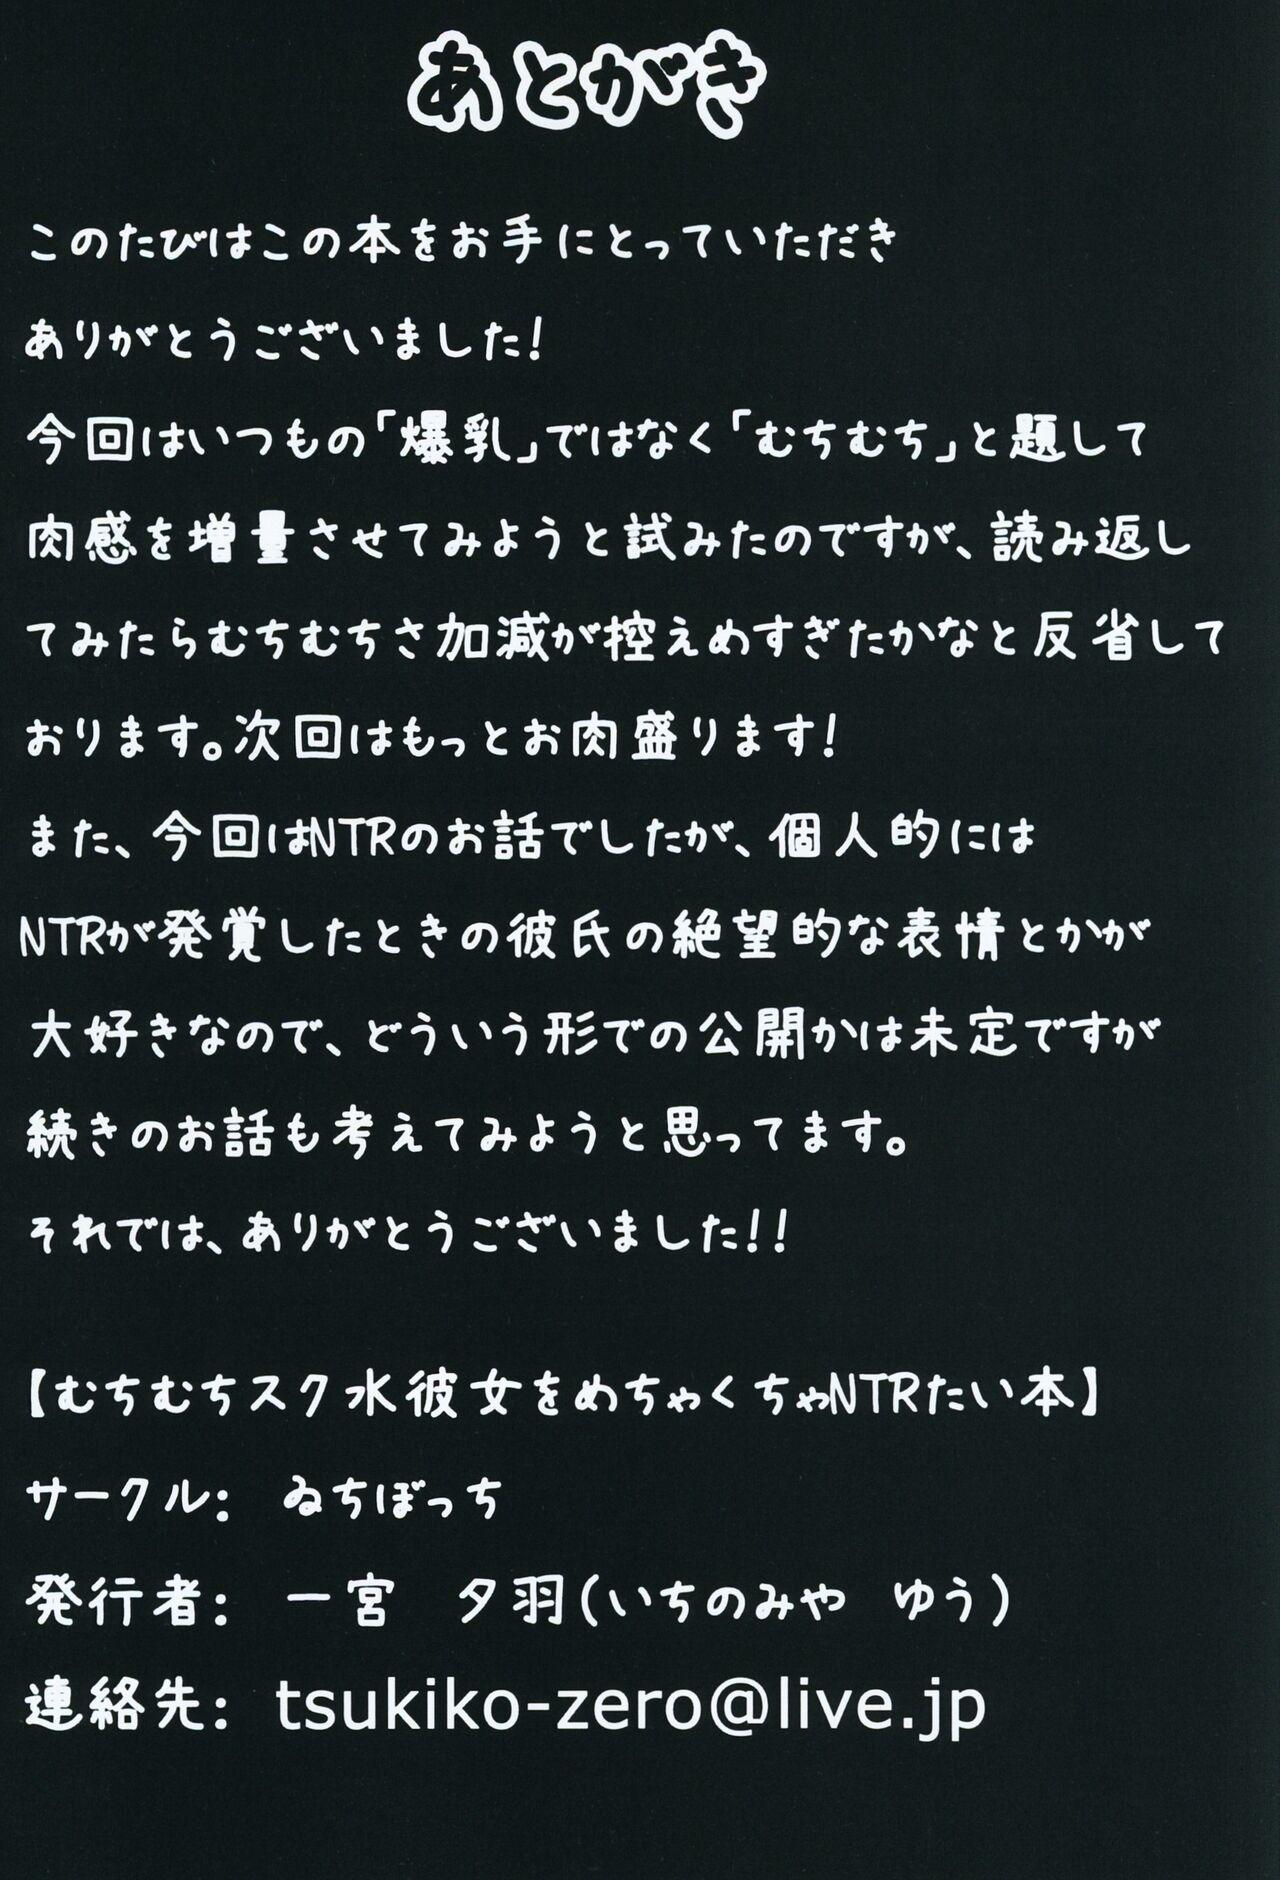 あとがき
このたびはこの本をお手にとっていただき
ありがとうございました!
今回はいつもの「爆乳」ではなく「むちむち」と題して
肉感を増量させてみようと試みたのですが、読み返し
てみたらむちむちさ加減が控えめすぎたかなと反省して
おります。次回はもっとお肉盛ります!
また、今回はNTRのお話でしたが、個人的には
NTRが発覚したときの彼氏の絶望的な表情とかが
大好きなので、どういう形での公開かは未定ですが
続きのお話も考えてみようと思ってます。
それでは、ありがとうございました!!
【むちむちスク水彼女をめちゃくちゃNTRたい本】
サークル: ゐちぼっち
発行者: 一宮 夕羽(いちのみや ゆう)
連絡先: tsukiko-zero@live.jp